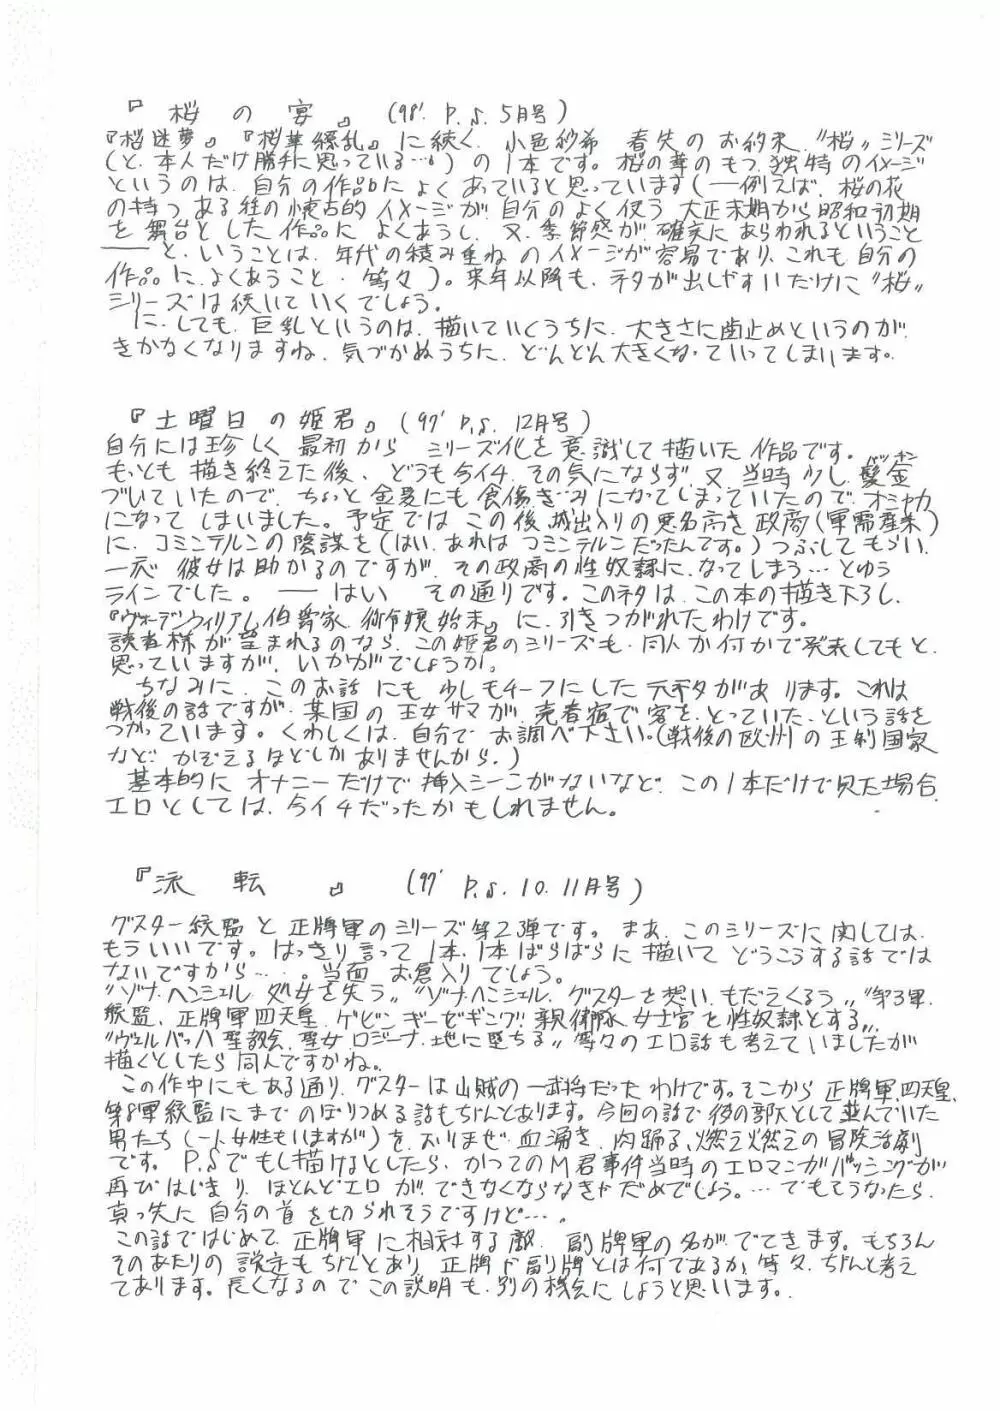 『桜の宴』(98' P.S. 5月号)
『桜迷夢』『桜華繚乱』に続く、小邑紗希 春失のお約束、“桜”シリーズ
(と、本人だけ勝手に思っている…。)の1本です。桜の華のもつ、独特のイメージ
というのは、自分の作品によくあっていると思っています(――例えば、桜の花
の持つある種の懐古的イメージが、自分のよく使う、大正末期から昭和初期
を舞台とした作品に、よくあうし、又、季節感が確実にあらわれるということ
――と、いうことは、年代の積み重ねのイメージが容易であり、これも自分の
作品に、よくあうこと、等々)。来年以降も、ネタが出しやすいだけに“桜”
シリーズは続いていくでしょう。
に、しても、巨乳というのは、描いていくうちに、大きさに歯止めというのが、
きかなくなりますね、気づかぬうちに、どんどん大きくなっていってしまいます。
『土曜日の姫君』(97' P.S. 12月号)
自分には珍しく、最初から シリーズ化を意識して描いた作品です。
もっとも描き終えた後、どうも今イチ、その気にならず、又、当時少し、髪金
パッキン
づいていたので、ちょっと金髪にも食傷ぎみになってしまっていたので、オシャカ
になってしまいました。予定では、この後、城出入りの悪名高き政商(軍需産業)
に、コミンテルンの陰謀を(はい、あれはコミンテルンだったんです。)つぶしてもらい、
一応、彼女は助かるのですが、その政商の性奴隷に、なってしまう…とゆう
ラインでした。――はい その通りです。このネタは、この本の描き下ろし、
『ヴォーデンウィリアム伯爵家 令嬢始末』に、引きつがれたわけです。
読者様が望まれるのなら、この姫君のシリーズも、同人か何かで発表してもと、
思っていますが、いかがでしょうか。
ちなみに、このお話にも少しモチーフにした元ネタがあります。これは
戦後の話ですが、某国の王女サマが、売春宿で客を、とっていた、という話を
つかっています。くわしくは、自分でお調べ下さい。(戦後の欧州の王制国家
など、かぞえるほどしかありませんから。)
基本的にオナニーだけで挿入シーンがないなど、この1本だけで見た場合、
エロとしては、今イチだったかもしれません。
『流転』(97' P.S. 10. 11月号)
グスター統監と正牌軍のシリーズ第2弾です。まあ、このシリーズに関しては、
もういいです。はっきり言って1本、1本ばらばらに描いてどうこうする話では
ないですから…。当面 お倉入りでしょう。
“ゾナ・ヘンシェル 処女を失う”“ゾナ・ヘンシェル、グスターを想い、もだえくるう”“第3軍
統監、正牌軍四天王、ゲビン・ギーゼギンガ!! 親衛隊女士官を性奴隷とする”
“ヴェルバッハ聖教会、聖女ロジーナ、地に堕ちる”等々のエロ話も考えていましたが
描くとしたら同人ですかね。
この作中にもある通り、グスターは山賊の一武将だったわけです。そこから正牌軍四天王、
第8軍統監にまでのぼりつめる話もちゃんとあります。今回の話で後の部下として並んでいた
男たち(一人女性もいますが)を、おりまぜ、血湧き、肉踊る、燃え燃えの冒険活劇
です。P.Sでもし描けるとしたら、かつてのM君事件当時のエロマンガバッシングが
再びはじまり、ほとんどエロが、できなくならなきゃだめでしょう。…でもそうなったら、
真っ先に自分の首を切られそうですけど…。
この話ではじめて、正牌軍に相対する敵、副牌軍の名がでてきます。もちろん
そのあたりの設定もちゃんとあり、正牌、副牌とは何であるか、等々、ちゃんと考え
てあります。長くなるのでこの説明も、別の機会にしようと思います。